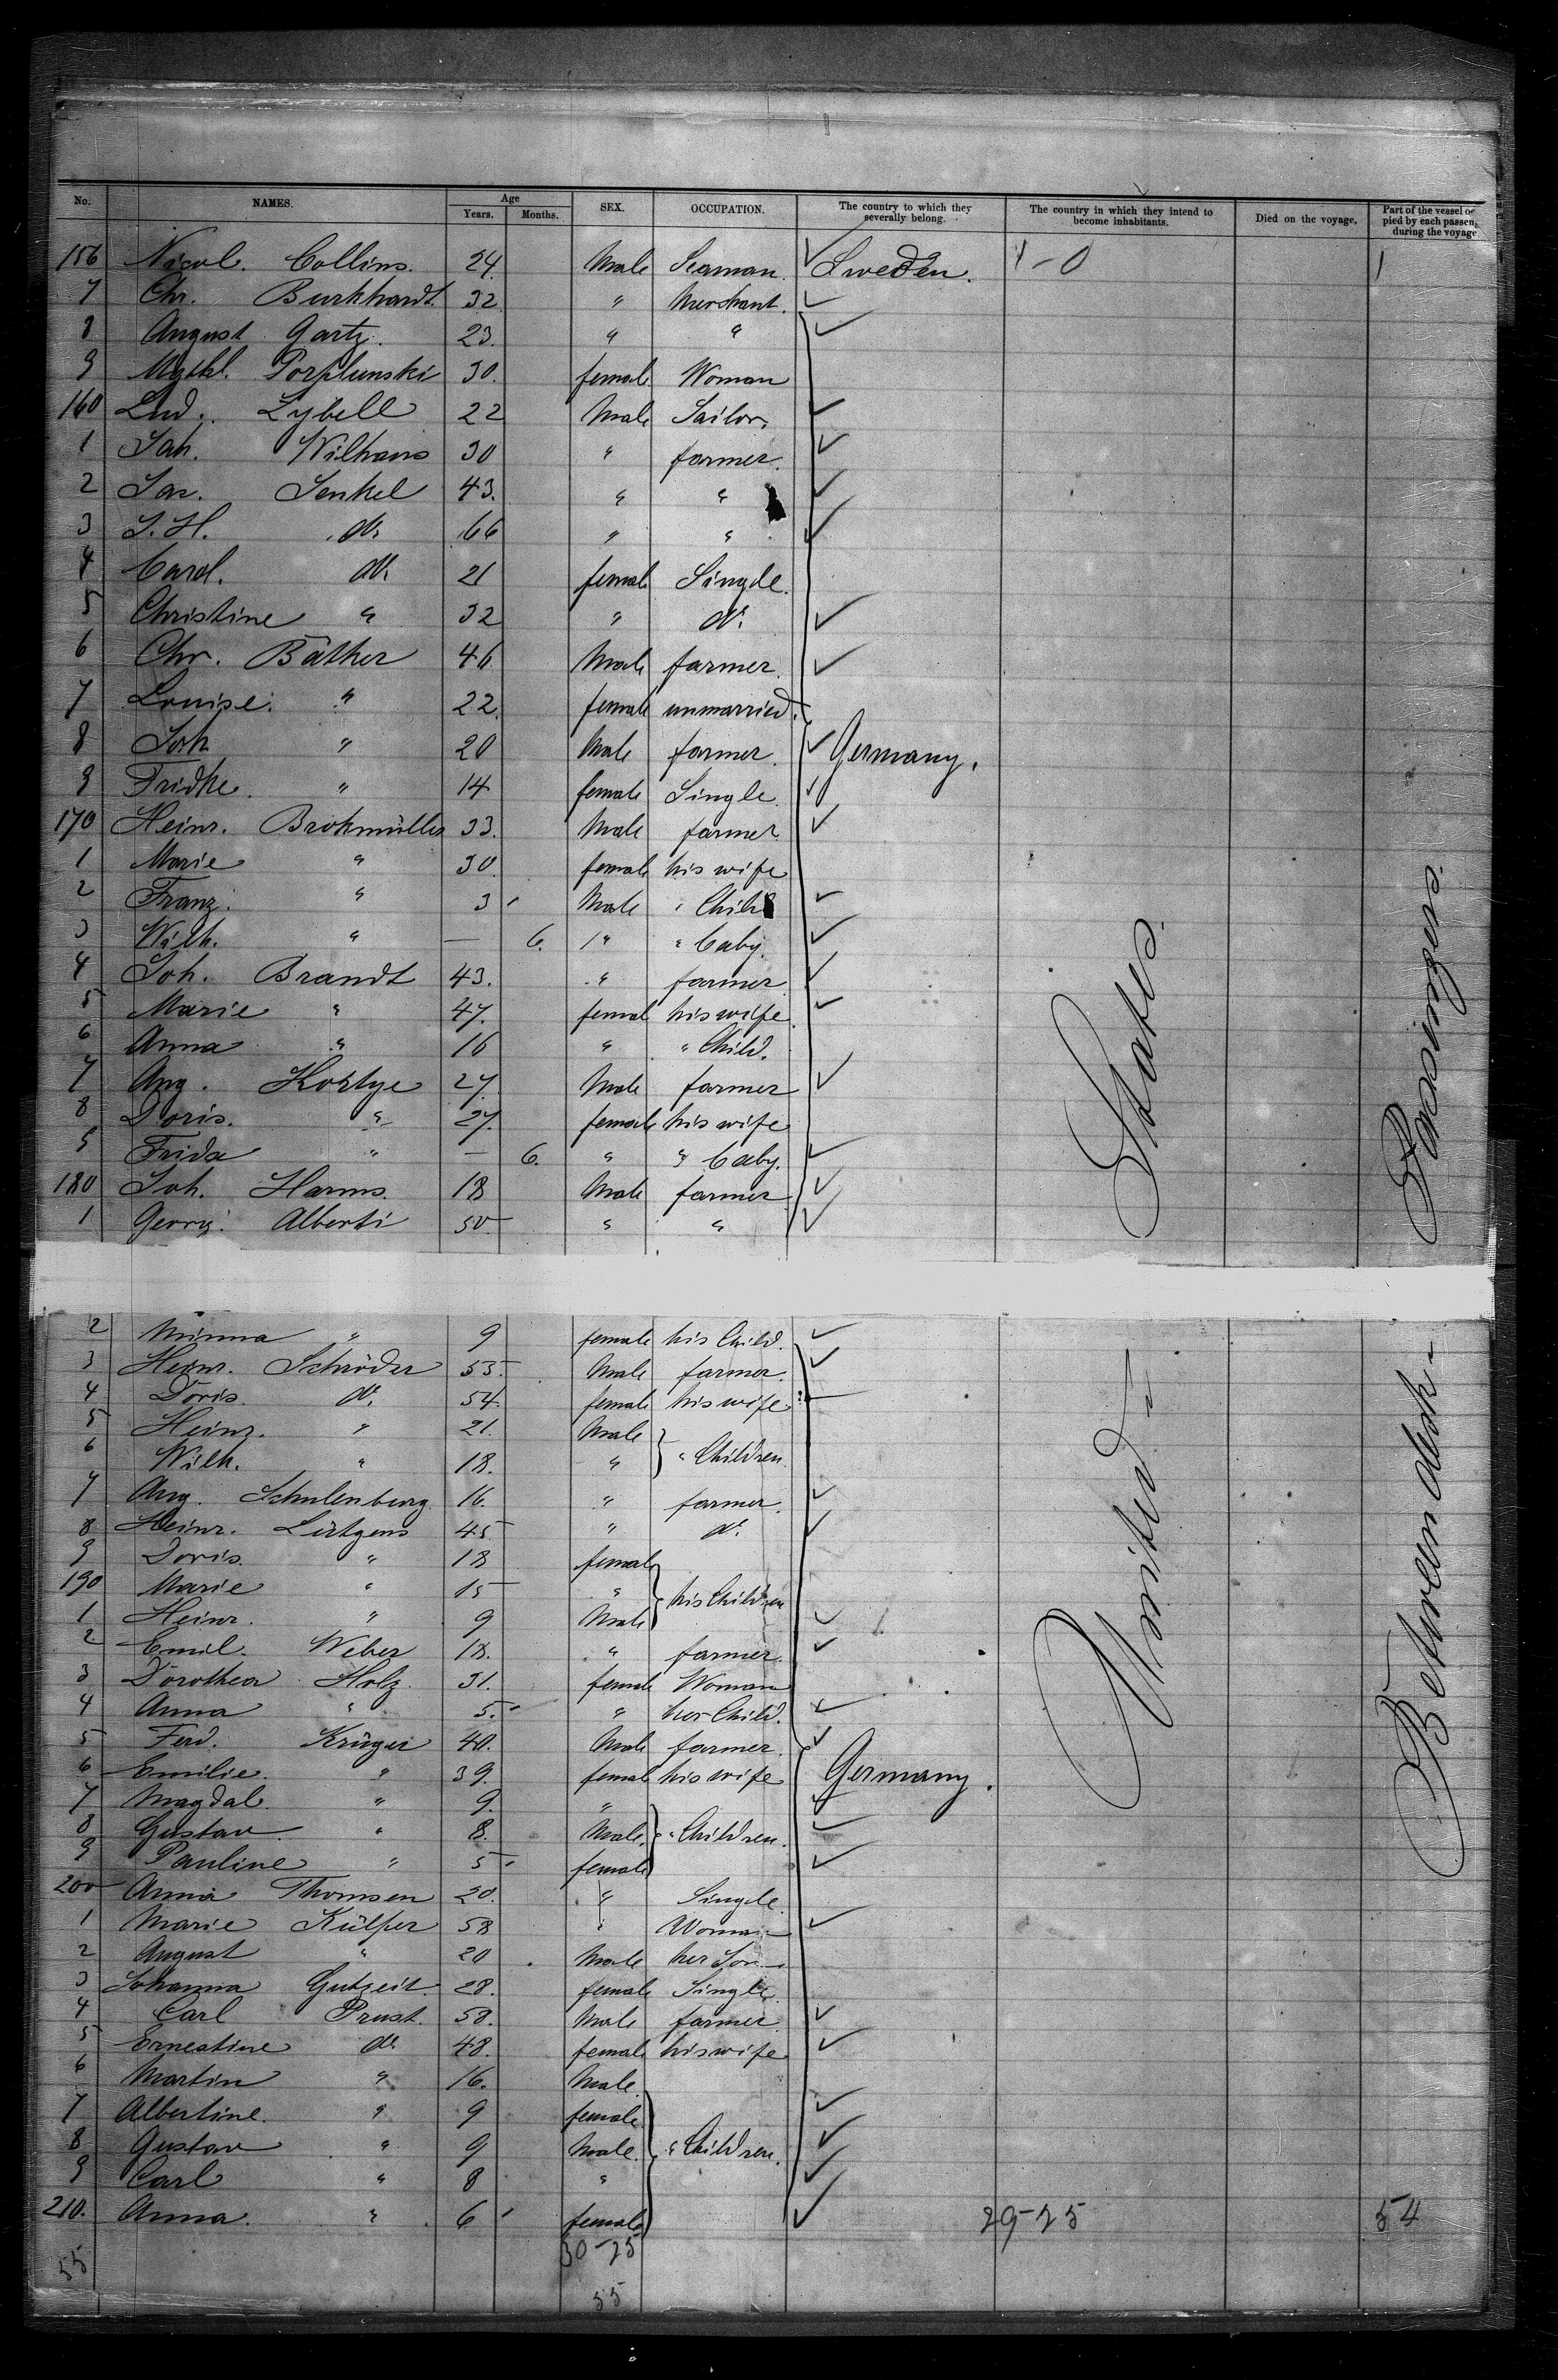 No. NAMES. Age Years. Months. SEX. OCCUPATION. The country to which they severally belong. The country in which they intend to become inhabitants. Died on the voyage. Part of the vessel oc pied by each passen, during the voyage
156 Nicol. Collins. 24. Male Seaman. Sweden. 1-0 1
7 Chr. Burkhardt. 32 " Merchant.
8 August Gartz. 23. " "
9 30. female Woman
160 Lud. Zybell 22 Male Sailor.
1 Joh. Wilhans 30 " farmer.
2 Jac. Senkel 43. " "
3 J. H. do. 66 " "
4 Carol. do. 21 female Single.
5 Christine " 32 " do.
6 Chr. Bäther 46 Male farmer.
7 Louise. " 22. female unmarried.
8 Joh " 20 Male farmer. Germany.
9 Fridke. " 14 female Single
170 Heinr. Brokmüller 33. Male farmer
1 Marie " 30. female his wife
2 Franz. " 3 Male " Child
3 Wilh. " — 6. " " baby.
4 Joh. Brandt 43. " farmer
5 Marie " 47. femal his wife
6 Anna " 16 " " Child.
7 Aug. 27. Male farmer
8 Doris. " 27. female his wife
9 Frida " — 6. " " baby.
180 Joh. Harms. 18 Male farmer
1 Georg. Alberti 50 " "
2 Minna " 9 female his Child.
3 Heinr. Schröder 53. Male farmer.
4 Doris. do. 54. female his wife
5 Heinr. " 21. Male
6 Wilh. " 18. " " Children.
7 Aug. Schulenburg 16. " farmer.
8 Heinr. Lürtgens 45 " do.
9 Doris. " 18 female
190 Marie " 15 " his Children
1 Heinr. " 9 Male
2 Emil. Weber 18. " farmer.
3 Dorothea Holz. 31. female Woman
4 Anna " 5. " her Child.
5 Ferd. Krüger 40. Male farmer.
6 Emilie. " 39. female his wife Germany.
7 Magdal. " 9. "
8 Gustav " 8. Male " Children.
9 Pauline " 5 female
200 Anna Thomsen 20. " Single.
1 Marie Külper 58 " Woman
2 August " 20 Male her Son
3 Johanna Gutzeit. 28. female Single.
4 Carl Prust. 58. Male farmer
5 Ernestine do. 48. female his wife
6 Martin " 16. Male.
7 Albertine. " 9 female
8 Gustav " 9 Male. " Children.
9 Carl " 8 "
210. Anna. " 6 female 29-25 54
30-25
55
55
United States.
Between deck Passengers.